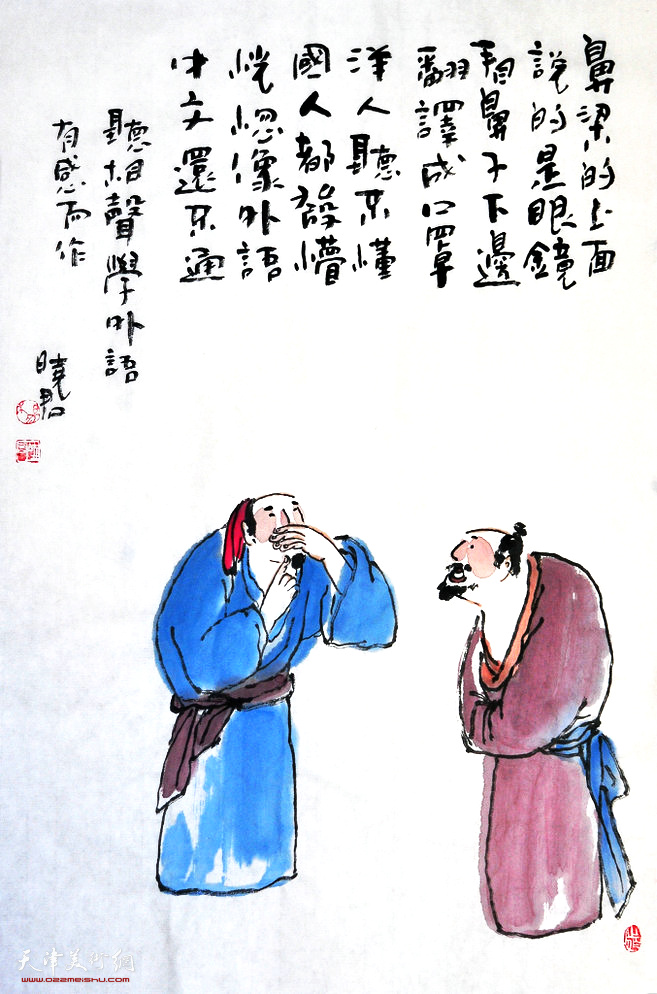 鼻梁的上面
說的是眼鏡
捂鼻子下邊
翻譯成口罩
洋人聽不懂
國人都發懵
恍惚像外語
中文還不通
聽相聲學外語
有感而作
曉君
天津美術網
www.022meishu.com